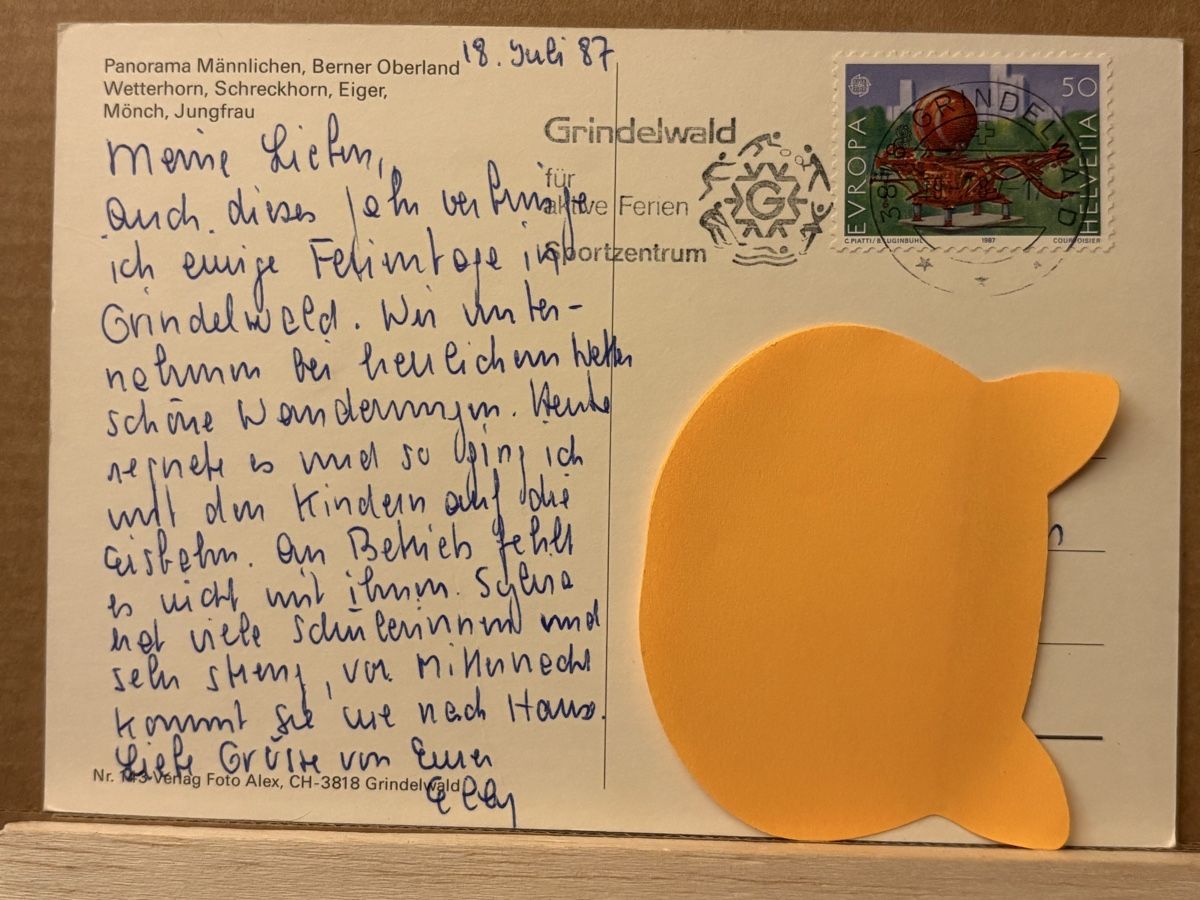 18. Juli 87
Panorama Männlichen, Berner Oberland
Wetterhorn, Schreckhorn, Eiger,
Mönch, Jungfrau
Meine Lieben,
auch dieses Jahr verbringe
ich einige Ferientage in
Grindelwald. Wir unter-
nehmen bei herrlichem Wetter
schöne Wanderungen. Heute
regnete es und so ging ich
mit den Kindern auf die
Eisbahn. An Betrieb fehlt
es nicht mit ihnen. Sylvia
hat viele Schülerinnen und
sehr streng, vor Mitternacht
kommt sie nie nach Haus.
Liebe Grüsse von Eurer
Elly
Nr. 143 Verlag Foto Alex, CH-3818 Grindelwald
Grindelwald
für
aktive Ferien
Sportzentrum
G
GRINDELWALD
3818
EVROPA
50
HELVETIA
C. PIATTI/B. LUGINBÜHL 1987 COURVOISIER